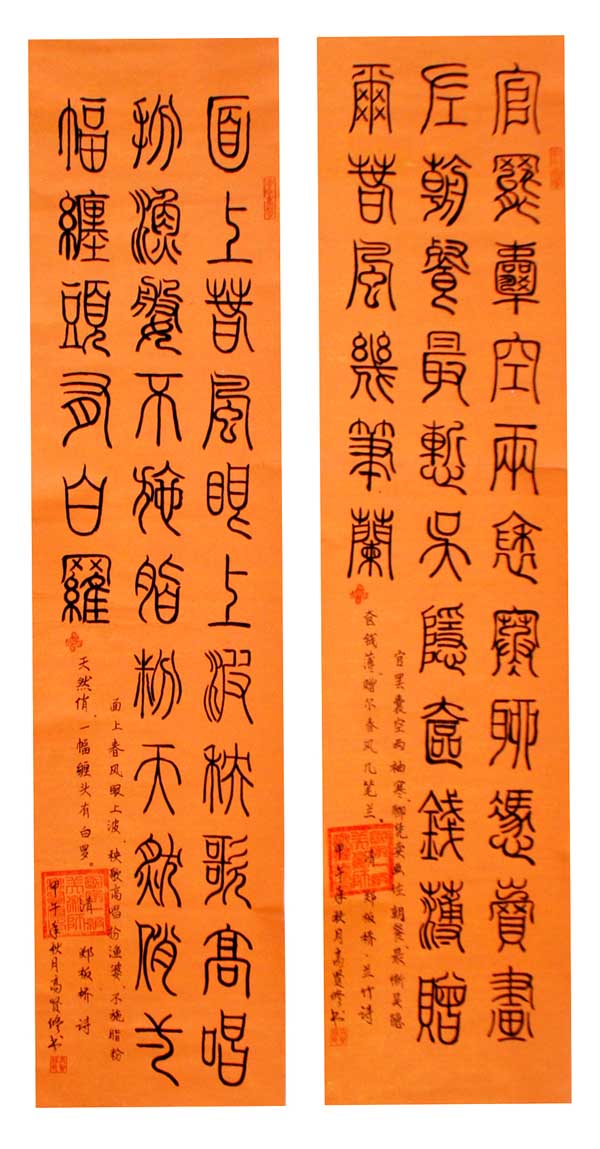 官罷囊空兩袖寒聊憑賣畫
左朝餐最慙吳隱奩錢薄贈
爾春風幾筆蘭
官罢囊空两袖寒、聊凭卖画佐朝餐、最惭吴隐
奁钱薄、赠尔春风几笔兰。清 郑板桥·兰竹诗
甲午年秋月高贤修书
面上春風眼上波秧歌高唱
扮漁婆不施脂粉天然俏弌
幅纏頭有白羅
面上春风眼上波、秧歌高唱扮渔婆、不施脂粉
天然俏、一幅缠头有白罗。清 郑板桥诗
甲午年秋月高贤修书